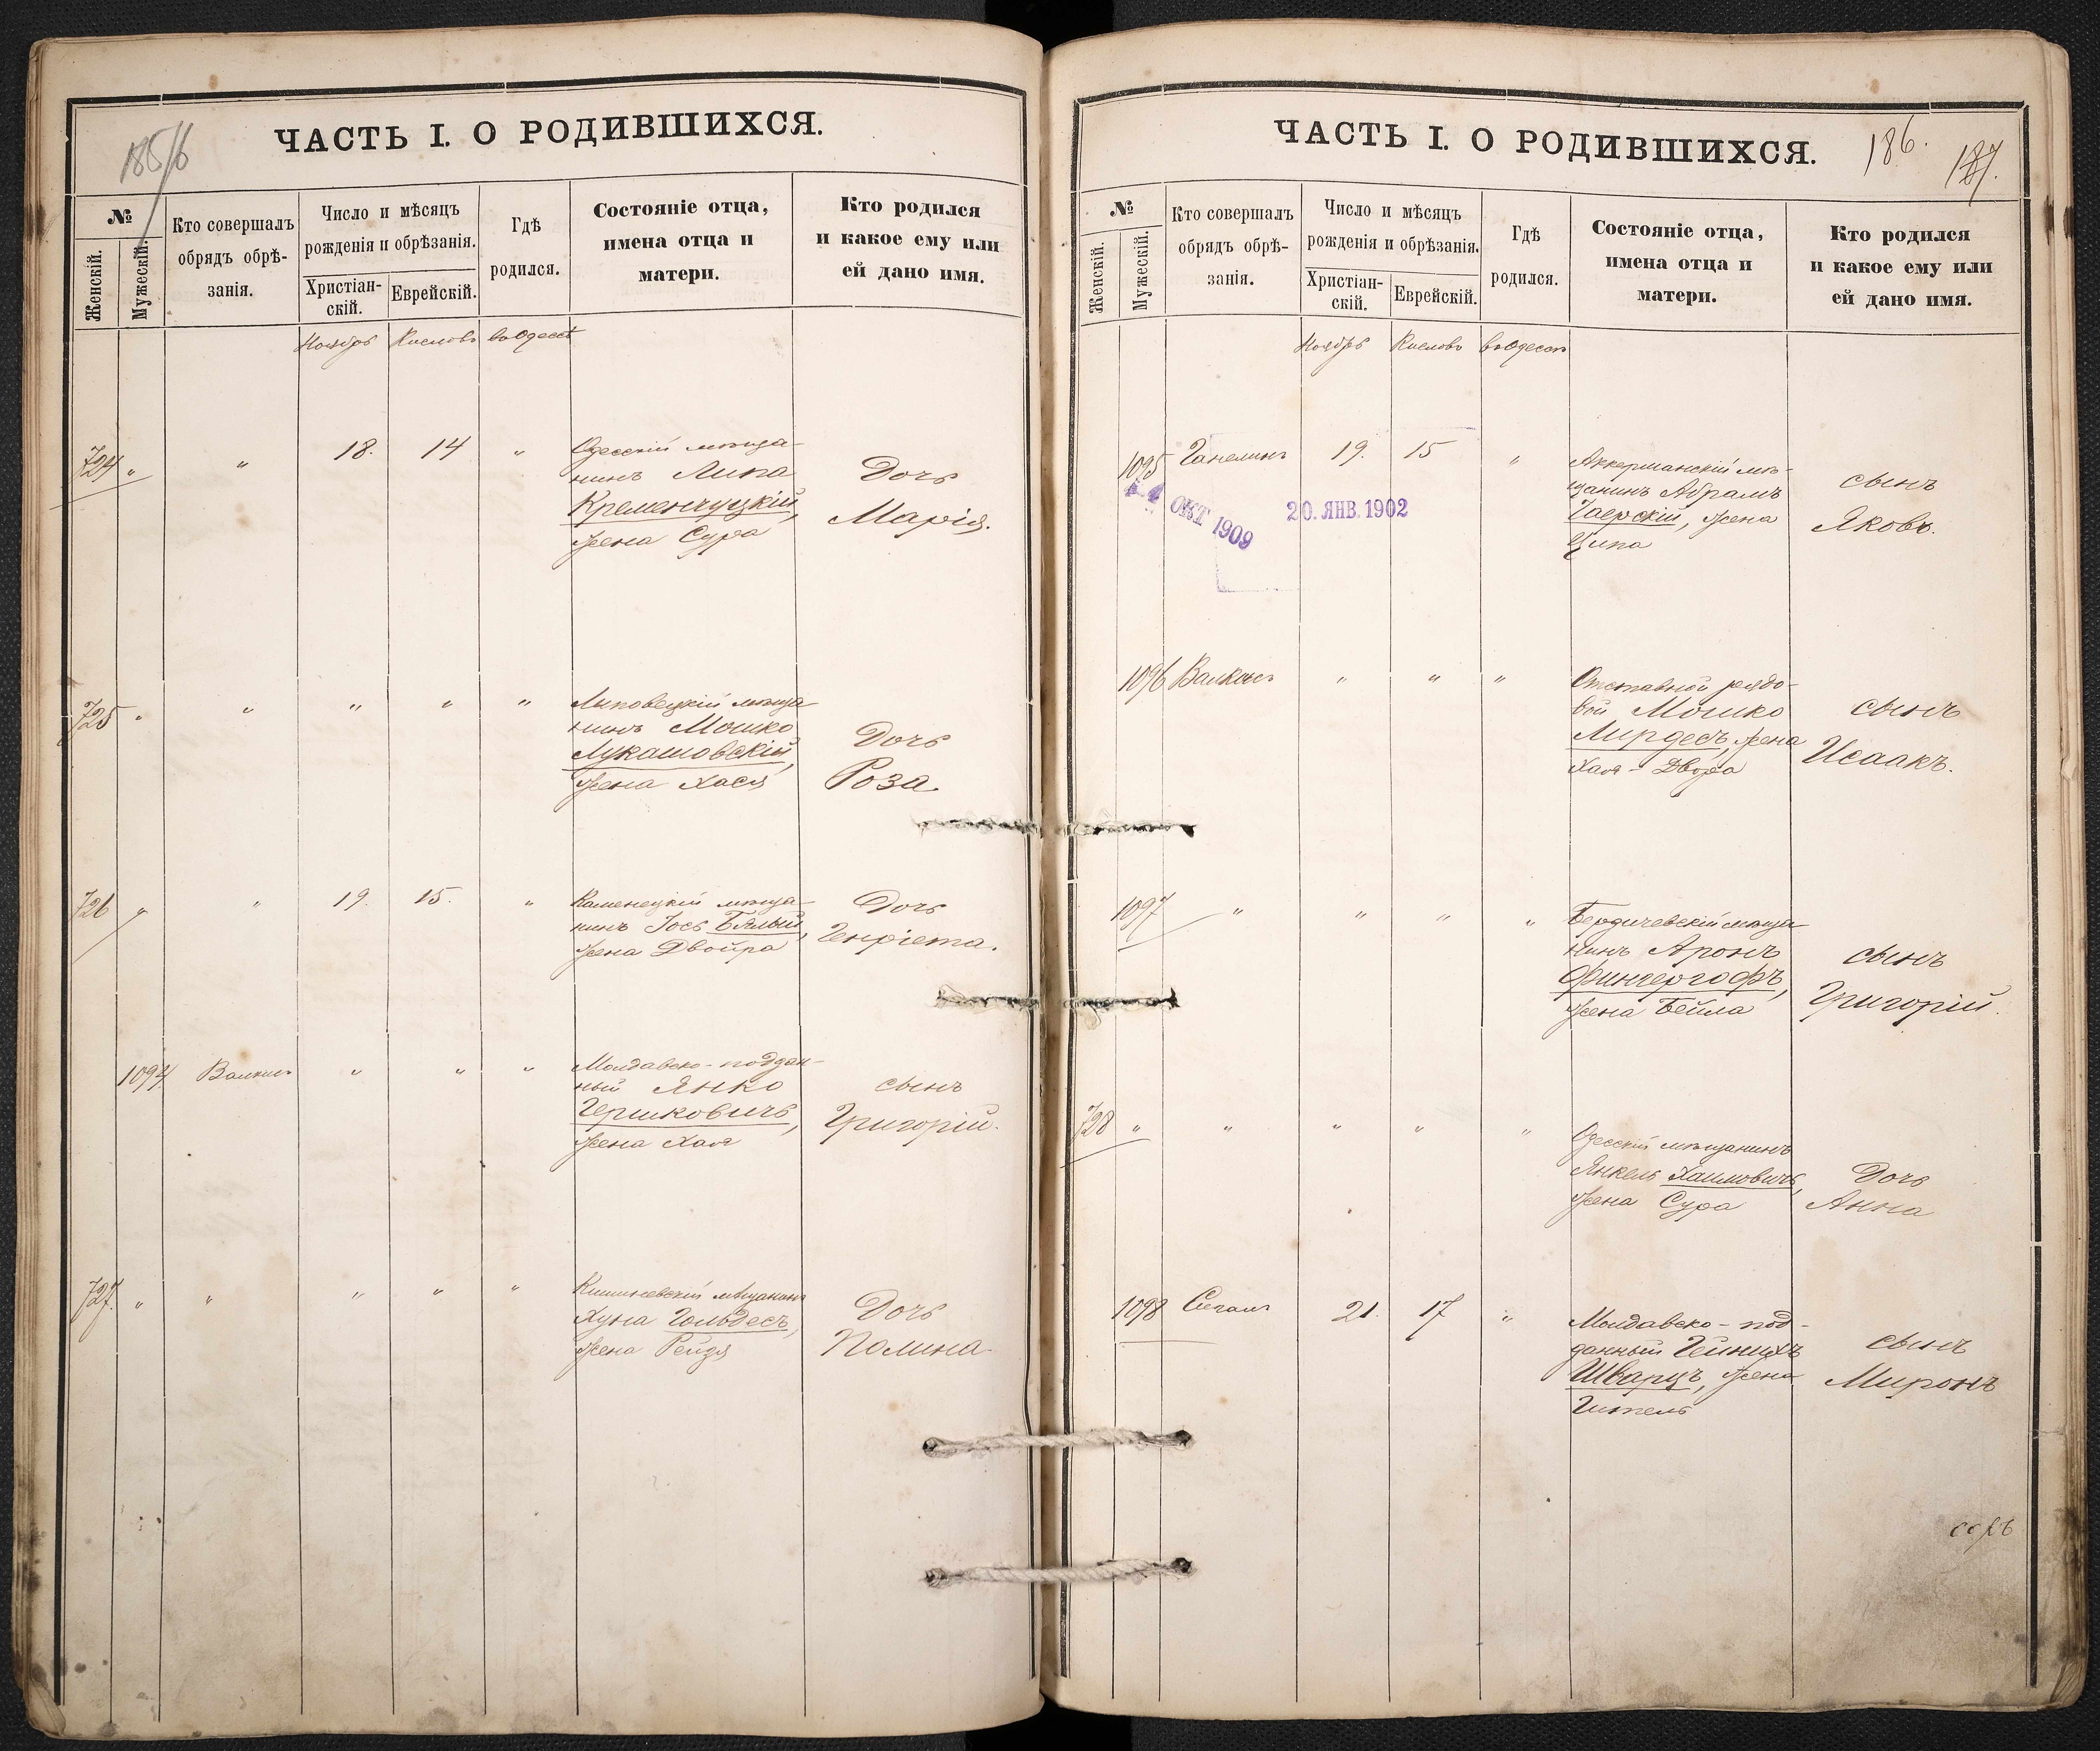 ЧАСТЬ I. О РОДИВШИХСЯ.
185/6
№
Женскій.
Мужескій.
Кто совершалъ
обрядъ обрѣ-
занія.
Число и мѣсяцъ
рожденія и обрѣзанія.
Христіан-
скій.
Еврейскій.
Гдѣ
родился.
Состояніе отца,
имена отца и
матери.
Кто родился
и какое ему или
ей дано имя.
Ноябрь Кислевъ въ Одессѣ
724 " " 18. 14 "
Одесскій мѣща-
нинъ Липа
Кременчуцкій,
жена Сура
Дочь
Марія.
725 " " " " "
Липовецкій мѣща-
нинъ Мошко
Лукашовскій,
жена Хася
Дочь
Роза.
726 " " 19. 15. "
Каменецкій мѣща-
нинъ Іось Бялый,
жена Двойра
Дочь
Генріета.
1094 Валкисъ " " "
Молдавско-поддан-
ный Янко
Гершковичъ,
жена Хая
сынъ
Григорій.
727. " " " " "
Кишиневскій мѣщанинъ
Хуна Гольдесъ,
жена Рейзя
Дочь
Полина
ЧАСТЬ I. О РОДИВШИХСЯ.
186.
187.
№
Женскій.
Мужескій.
Кто совершалъ
обрядъ обрѣ-
занія.
Число и мѣсяцъ
рожденія и обрѣзанія.
Христіан-
скій.
Еврейскій.
Гдѣ
родился.
Состояніе отца,
имена отца и
матери.
Кто родился
и какое ему или
ей дано имя.
Ноябрь Кислевъ въ Одессѣ
1095 Ганелинъ 19. 15 "
ОКТ 1909
20. ЯНВ. 1902
Аккерманскій мѣ-
щанинъ Абрамъ
Гаерскій, жена
Ципа
сынъ
Яковъ.
1096 Валкисъ " " "
Отставной рядо-
вой Мошко
Мирдесъ, жена
Хая-Двора
сынъ
Исаакъ.
1097 " " " "
Бердичевскій мѣща-
нинъ Аронъ
Фингергофъ,
жена Бейла
сынъ
Григорій.
728 " " " " "
Одесскій мѣщанинъ
Янкель Хаимовичъ,
жена Сура
Дочь
Анна
1098 Сегалъ 21. 17 "
Молдавско-под-
данный Гейнихъ
Шварцъ, жена
Гитель
сынъ
Миронъ